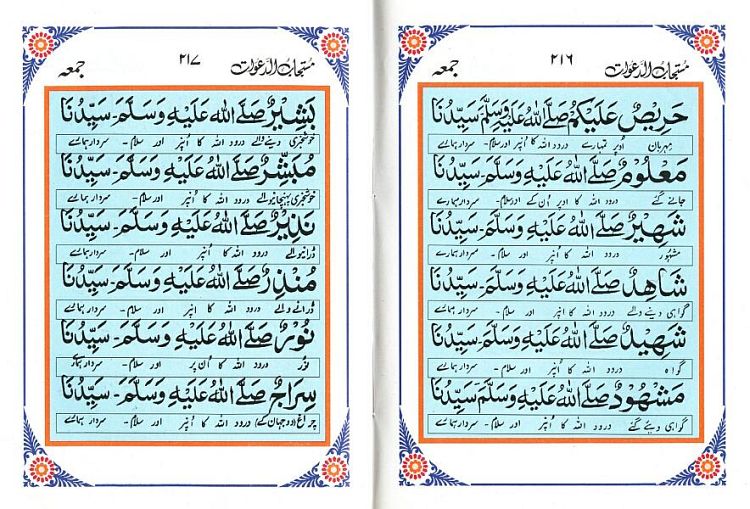 مستجاب الدعوات ۲۱۶ جمعه
حَرِيْصٌ عَلَيْكُمْ صَلَّے اللهُ عَلَيْهِ وَسَلَّمَ سَيِّدُنَا
مہربان اوپر تمہارے درود اللہ کا اُنپر اور سلام۔ سردار ہمارے
مَعْلُوْمٌ صَلَّے اللهُ عَلَيْهِ وَسَلَّمَ۔ سَيِّدُنَا
جانے گئے درود اللہ کا اوپر اُن کے اور سلام۔ سردار ہمارے
شَهِيْرٌ صَلَّے اللهُ عَلَيْهِ وَسَلَّمَ۔ سَيِّدُنَا
مشہور درود اللہ کا اُنپر اور سلام۔ سردار ہمارے
شَاهِدٌ صَلَّے اللهُ عَلَيْهِ وَسَلَّمَ۔ سَيِّدُنَا
گواہی دینے والے درود اللہ کا اُنپر اور سلام۔ سردار ہمارے
شَهِيْدٌ صَلَّے اللهُ عَلَيْهِ وَسَلَّمَ۔ سَيِّدُنَا
گواہ درود اللہ کا اُنپر اور سلام۔ سردار ہمارے
مَشْهُوْدٌ صَلَّے اللهُ عَلَيْهِ وَسَلَّمَ سَيِّدُنَا
گواہی دیئے گئے درود اللہ کا اُنپر اور سلام۔ سردار ہمارے
مستجاب الدعوات ۲۱۷ جمعه
بَشِيْرٌ صَلَّے اللهُ عَلَيْهِ وَسَلَّمَ۔ سَيِّدُنَا
خوشخبری دینے والے درود اللہ کا اُنپر اور سلام۔ سردار ہمارے
مُبَشِّرٌ صَلَّے اللهُ عَلَيْهِ وَسَلَّمَ۔ سَيِّدُنَا
خوشخبری پہنچانیوالے درود اللہ کا اُنپر اور سلام۔ سردار ہمارے
نَذِيْرٌ صَلَّے اللهُ عَلَيْهِ وَسَلَّمَ۔ سَيِّدُنَا
ڈرانیوالے درود اللہ کا اُنپر اور سلام۔ سردار ہمارے
مُنْذِرٌ صَلَّے اللهُ عَلَيْهِ وَسَلَّمَ۔ سَيِّدُنَا
ڈرانے والے درود اللہ کا اُنپر اور سلام۔ سردار ہمارے
نُوْرٌ صَلَّے اللهُ عَلَيْهِ وَسَلَّمَ۔ سَيِّدُنَا
نور درود اللہ کا اُن پر اور سلام۔ سردار ہمارے
سِرَاجٌ صَلَّے اللهُ عَلَيْهِ وَسَلَّمَ۔ سَيِّدُنَا
چراغ (دو جہان کے) درود اللہ کا اُنپر اور سلام۔ سردار ہمارے